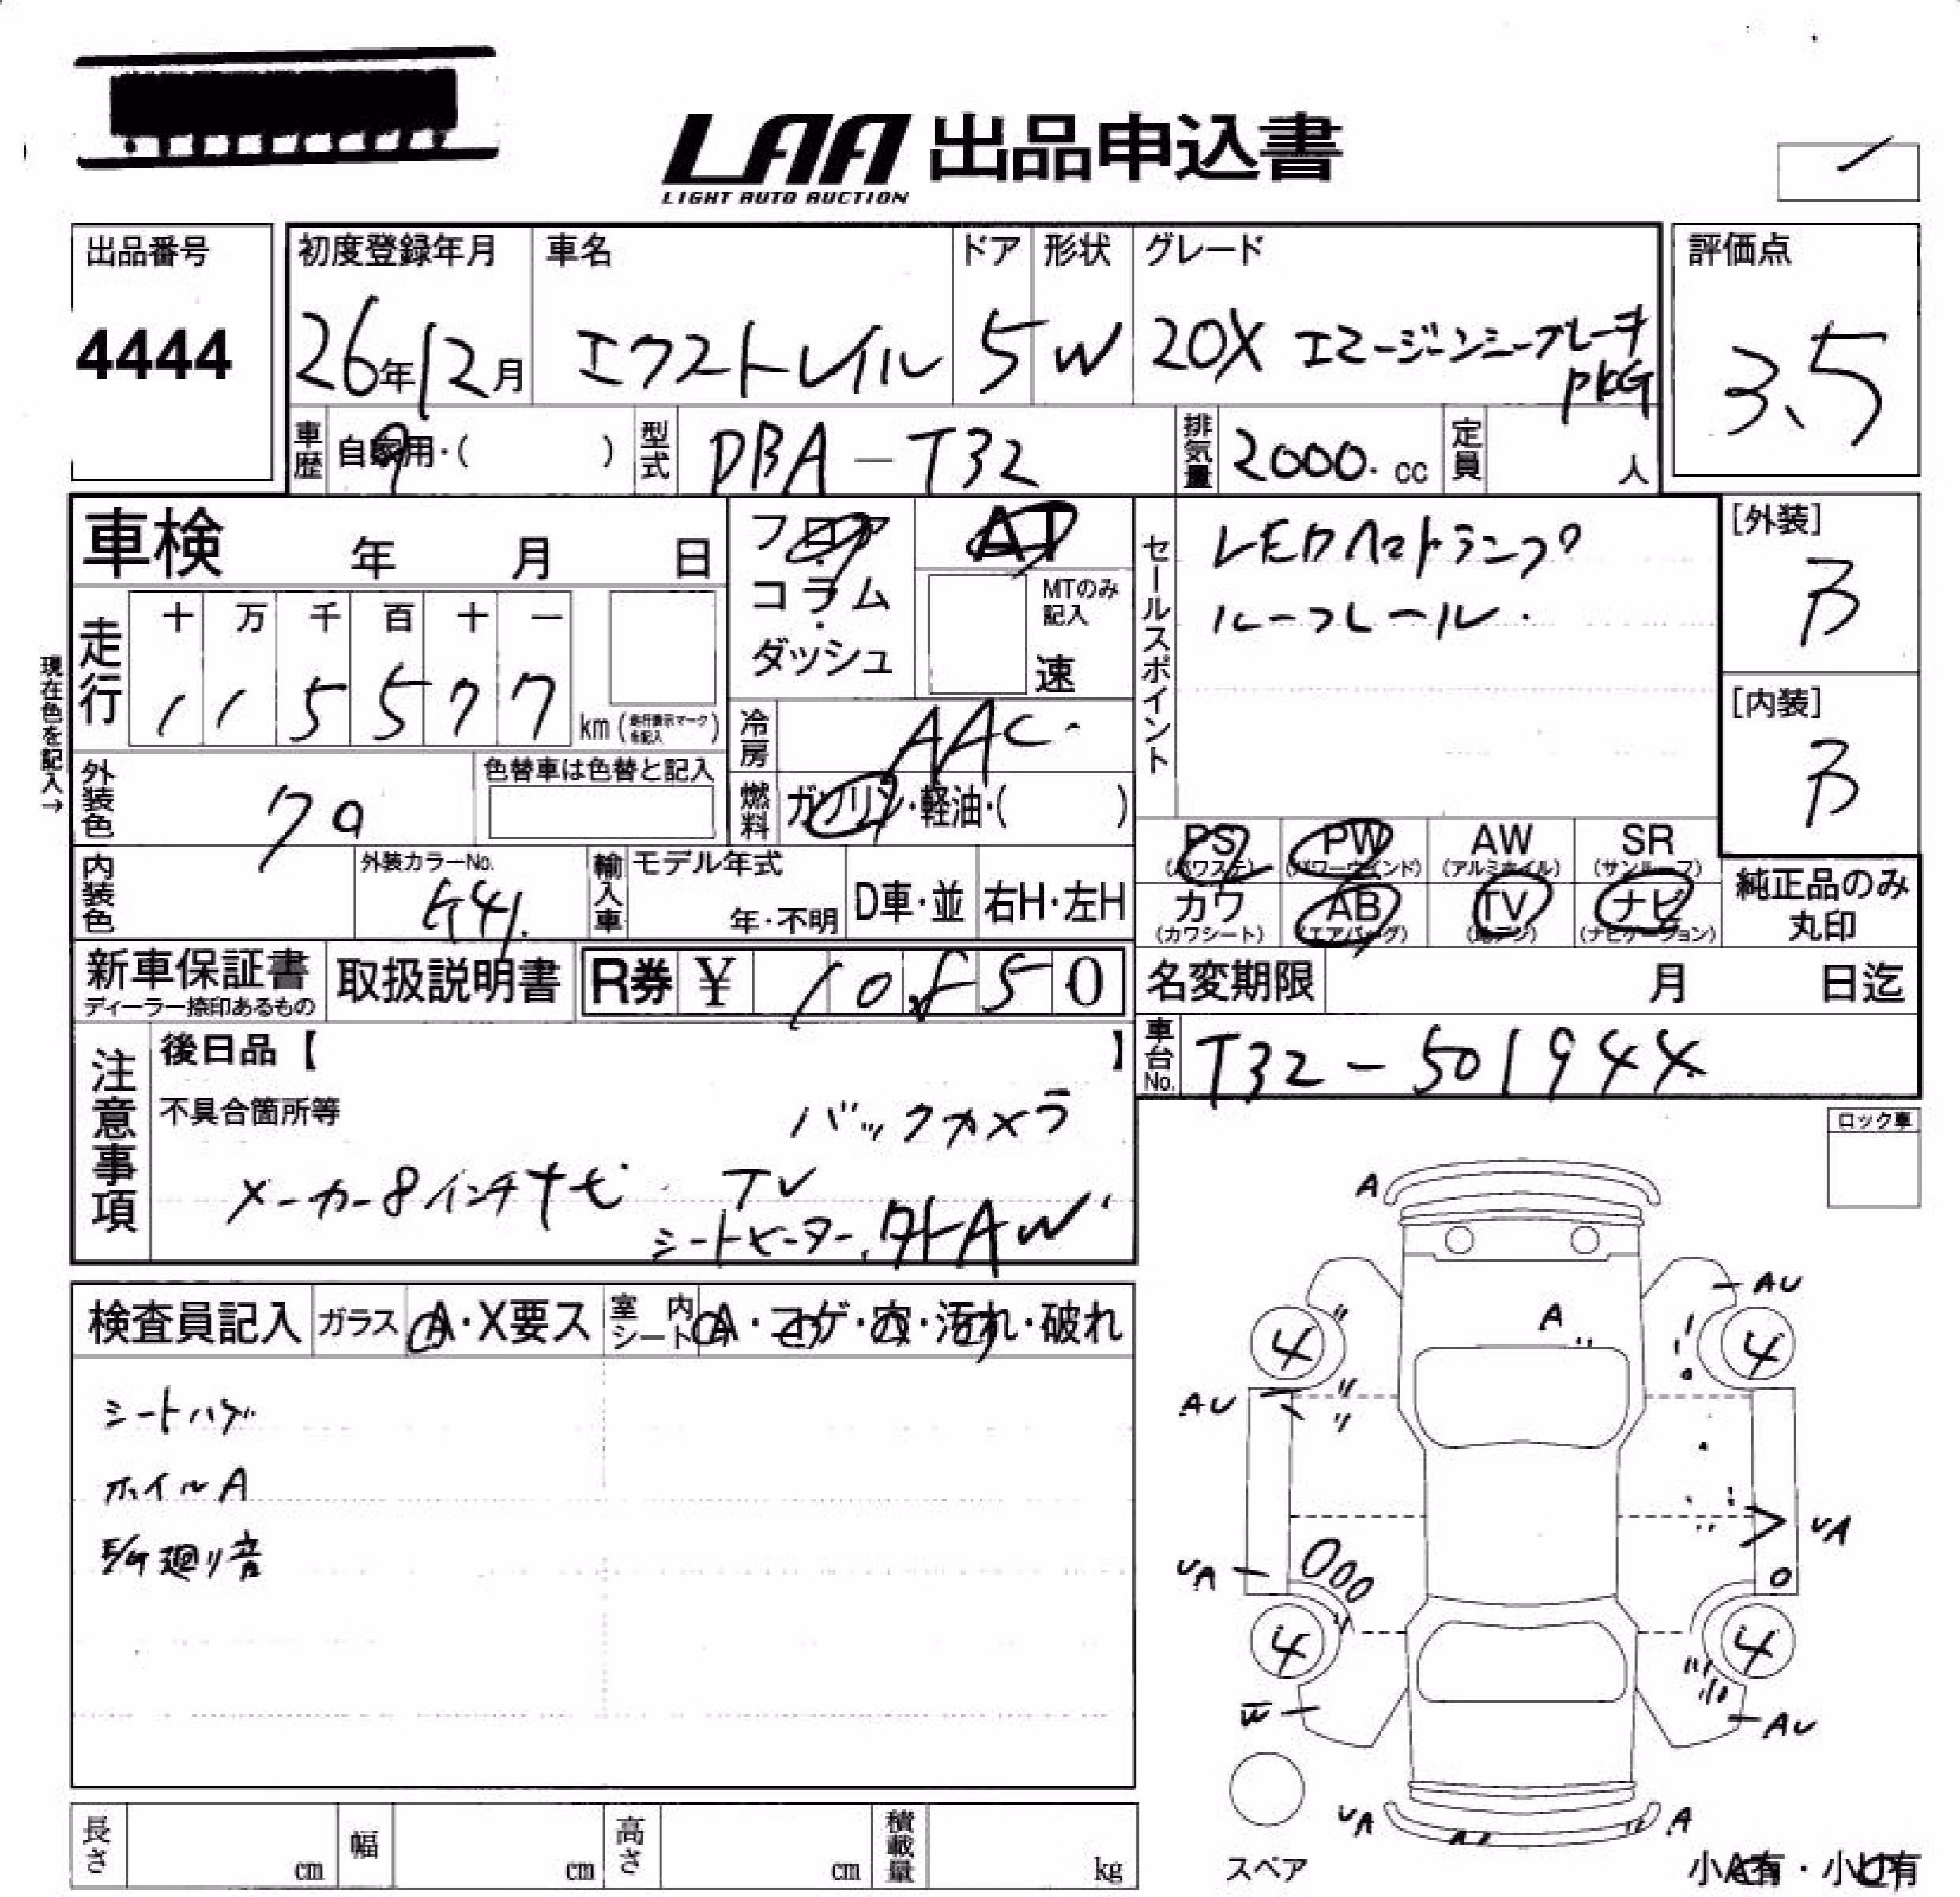 LAA 出品申込書
LIGHT AUTO AUCTION
出品番号
4444
初度登録年月
26年12月
車名
エクストレイル
ドア
5
形状
W
グレード
20X エマージェンシーブレーキ
PKG
評価点
3.5
車歴
自家用・( )
型式
DBA-T32
排気量
2000. cc
定員
人
車検 年 月 日
フロア
コラム
ダッシュ
AT
MTのみ
記入
速
セールスポイント
LEDヘッドランプ
ルーフレール.
[外装]
B
[内装]
B
現在色を記入→
走行
十 万 千 百 十 一
1 1 5 5 7 7
km (走行表示マークを記入)
冷房
AAC
燃料
ガソリン・軽油・( )
外装色
クロ
色替車は色替と記入
内装色
外装カラーNo.
G41.
輸入車
モデル年式
年・不明
D車・並
右H・左H
PS (パワステ)
PW (パワーウインド)
AW (アルミホイル)
SR (サンルーフ)
カワ (カワシート)
AB (エアバッグ)
TV (地デジ)
ナビ (ナビゲーション)
純正品のみ
丸印
新車保証書
ディーラー捺印あるもの
取扱説明書
R券 ¥ 10,550
名変期限 月 日迄
車台No.
T32-501944
注意事項
後日品【 】
不具合箇所等
バックカメラ
メーカー8インチナビ TV
シートヒーター. 外AW
ロック車
検査員記入
ガラス
A・X要ス
室内シート
A・コゲ・穴・汚れ・破れ
シートハゲ
ホイルA
E/G廻り音
A
AU
A
4 4
AU
UA
UA
4 4
W
AU
UA
A
スペア
小A有・小U有
長さ cm
幅 cm
高さ cm
積載量 kg